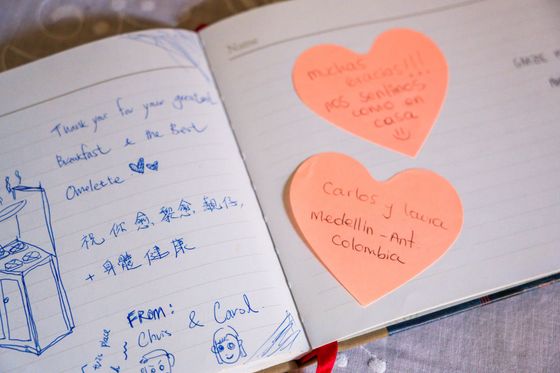 Thank you for your great
Breakfast & the Best
Omelette
祝你愈黎愈靚仔,
+ 身體健康
FROM:
Chris & Carol.
this place
Name
muchas
Gracias!!!
nos sentimos
como en
casa
Carlos y laura
medellin - Ant-
Colombia
GRAZIE